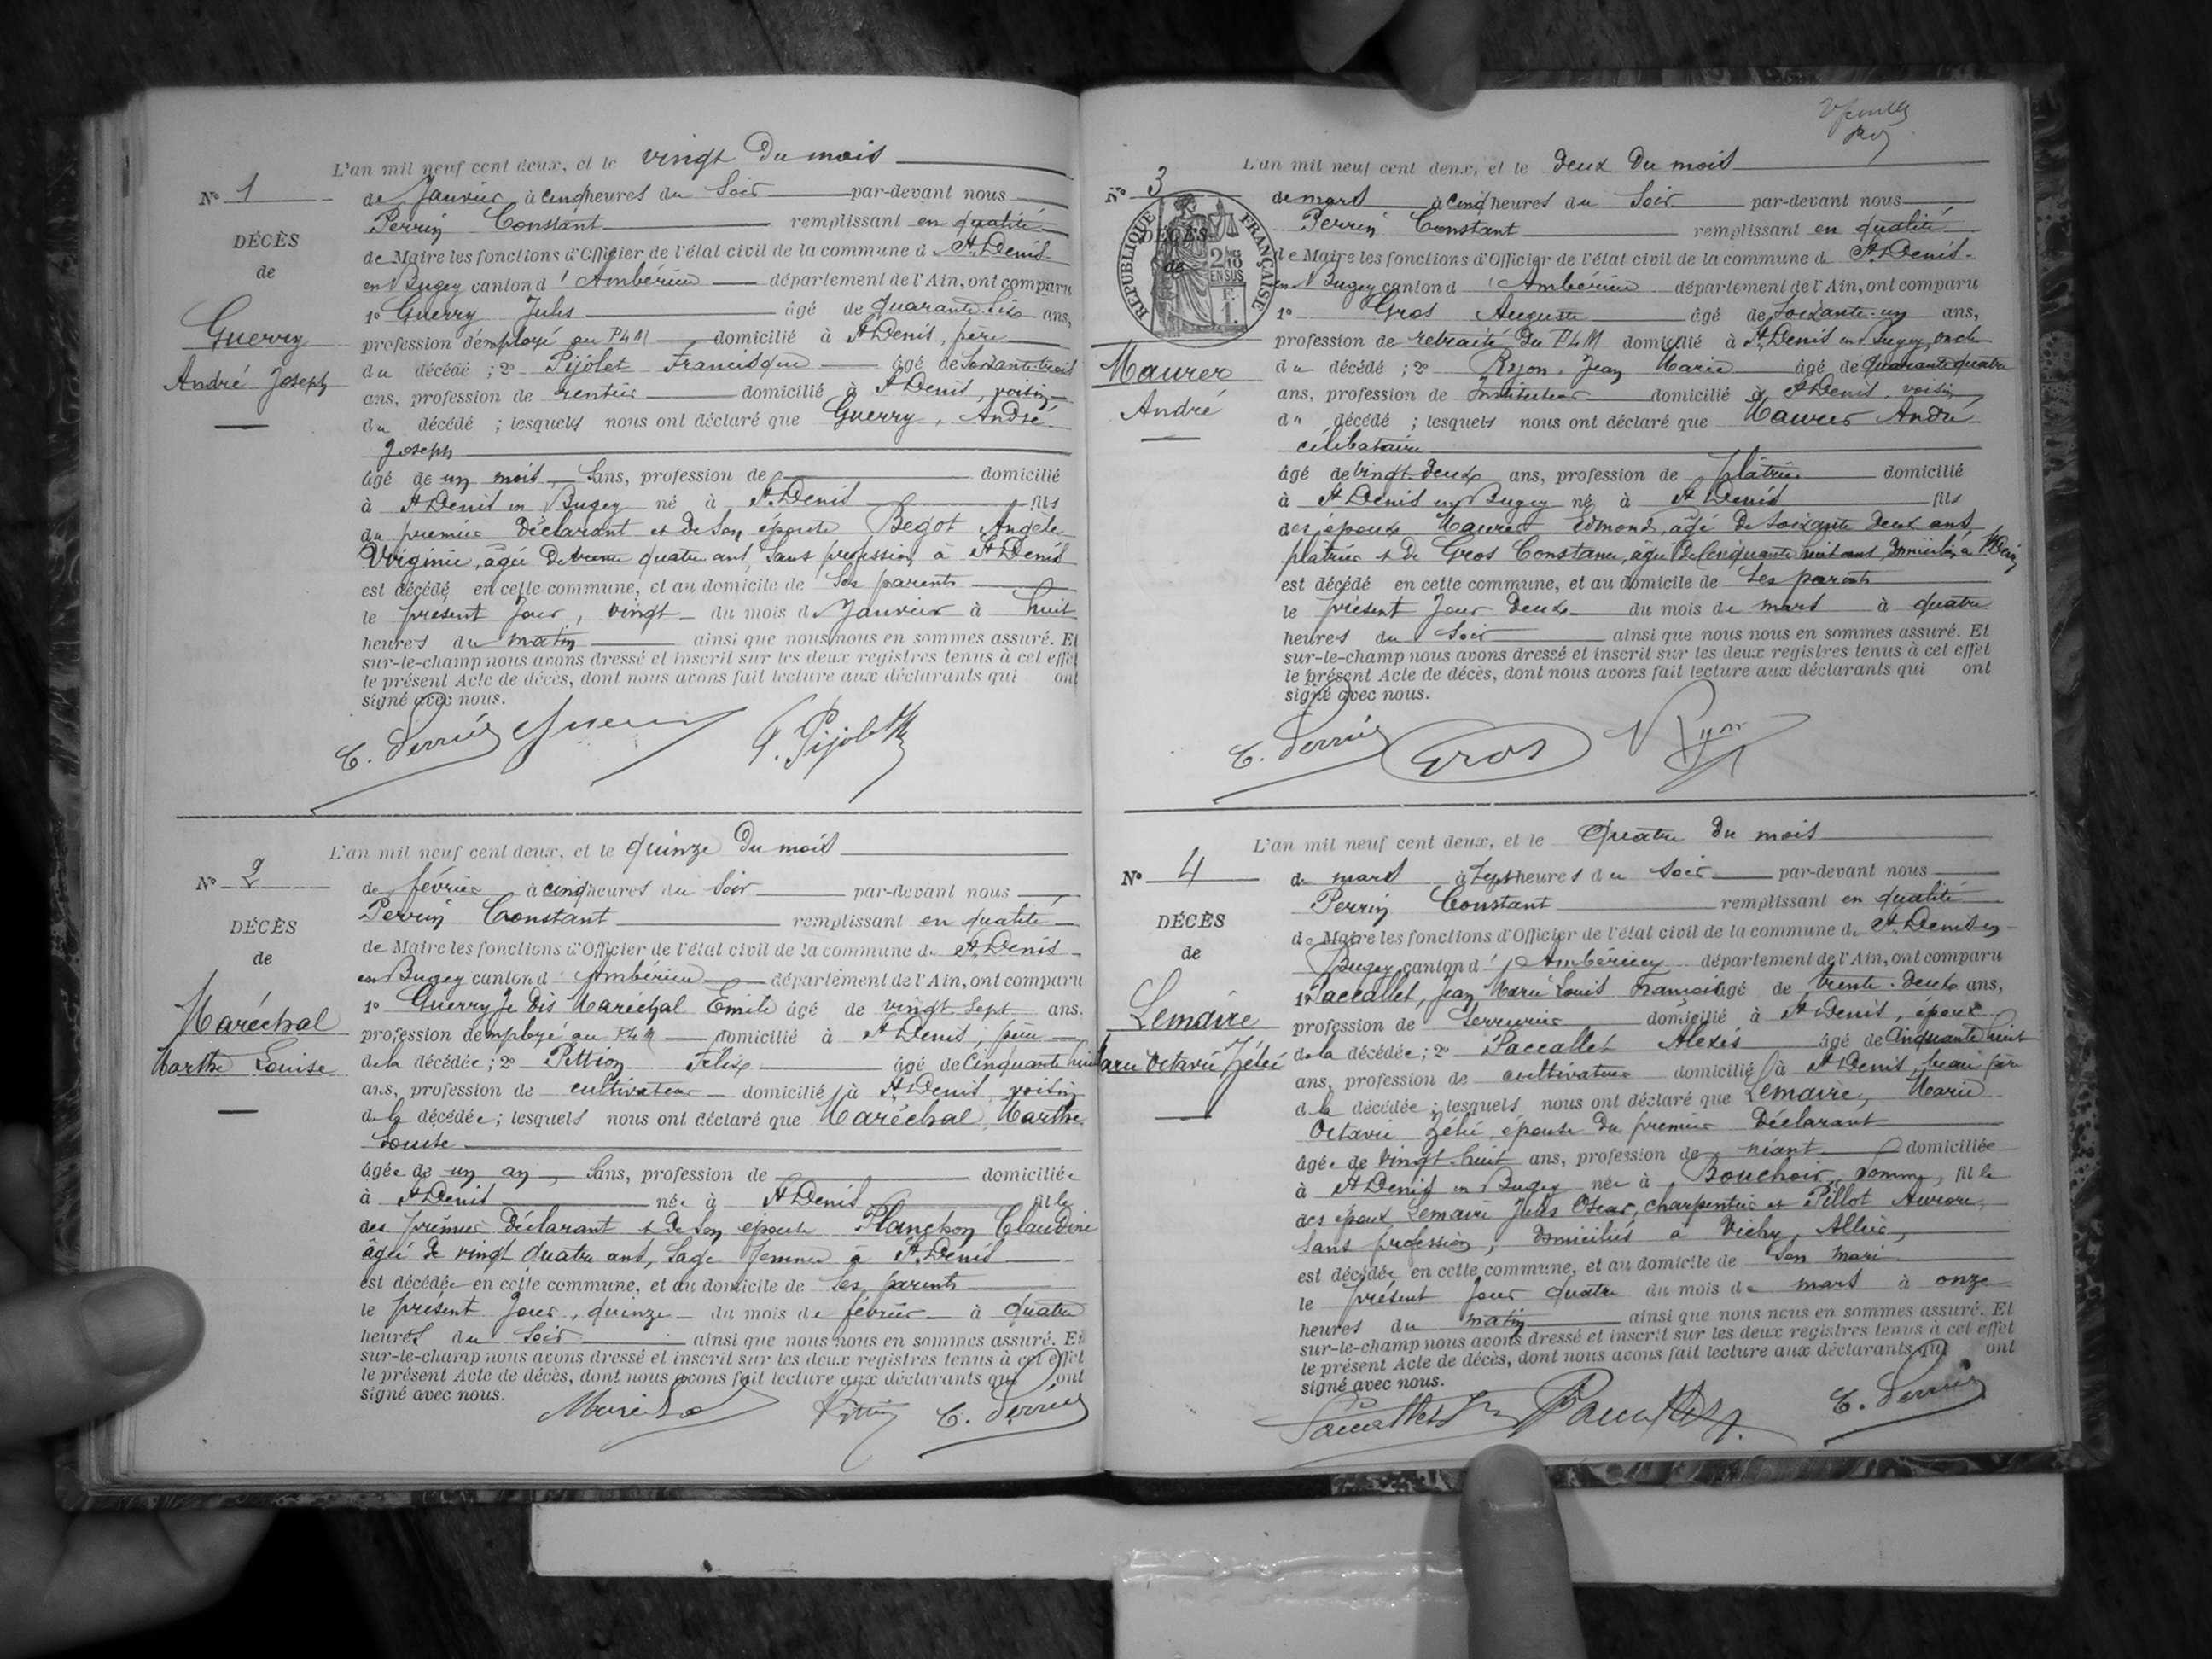 L'an mil neuf cent deux, et le vingt du mois
N° 1
de Janvier à cinq heures du soir par-devant nous
Perrin Constant remplissant en qualité
DÉCÈS
de Maire les fonctions d'Officier de l'état civil de la commune de St Denis
de
en Bugey canton d'Ambérieu département de l'Ain, ont comparu
1° Guerry Jules âgé de quarante six ans,
Guerry
profession d'employé au PLM domicilié à St Denis, père
André Joseph
du décédé ; 2° Pijolet Francisque âgé de soixante trois
ans, profession de rentier domicilié à St Denis, voisin
du décédé ; lesquels nous ont déclaré que Guerry, André
Joseph
âgé de un mois, sans, profession de domicilié
à St Denis en Bugey né à St Denis fils
du premier déclarant et de son épouse Begot Angèle
Virginie, agée de trente quatre ans, sans profession à St Denis
est décédé en cette commune, et au domicile de ses parents
le présent jour, vingt du mois de Janvier à huit
heures du matin ainsi que nous nous en sommes assuré. Et
sur-le-champ nous avons dressé et inscrit sur les deux registres tenus à cet effet
le présent Acte de décès, dont nous avons fait lecture aux déclarants qui ont
signé avec nous.
C. Perrin Guerry F. Pijolet
L'an mil neuf cent deux, et le quinze du mois
N° 2
de février à cinq heures du soir par-devant nous
Perrin Constant remplissant en qualité
DÉCÈS
de Maire les fonctions d'Officier de l'état civil de la commune de St Denis
de
en Bugey canton d'Ambérieu département de l'Ain, ont comparu
1° Guerry Je dis Maréchal Emile âgé de vingt sept ans.
Maréchal
profession d'employé au PLM domicilié à St Denis, père
Marthe Louise
de la décédée ; 2° Pittion Félix âgé de cinquante huit
ans, profession de cultivateur domicilié à St Denis, voisin
de la décédée ; lesquels nous ont déclaré que Maréchal Marthe
Louise
âgée de un an, sans, profession de domiciliée
à St Denis née à St Denis fille
des premier déclarant et de son épouse Planchon Claudine
âgée de vingt quatre ans, sage femme à St Denis
est décédée en cette commune, et au domicile de ses parents
le présent jour, quinze du mois de février à quatre
heures du soir ainsi que nous nous en sommes assuré. Et
sur-le-champ nous avons dressé et inscrit sur les deux registres tenus à cet effet
le présent Acte de décès, dont nous avons fait lecture aux déclarants qui ont
signé avec nous.
Maréchal Pittion C. Perrin
L'an mil neuf cent deux, et le deux du mois
N° 3
de mars à cinq heures du soir par-devant nous
Perrin Constant remplissant en qualité
RÉPUBLIQUE FRANÇAISE
DÉCÈS
2/10 EN SUS
F. 1.
de Maire les fonctions d'Officier de l'état civil de la commune de St Denis
de
en Bugey canton d'Ambérieu département de l'Ain, ont comparu
1° Gros Auguste âgé de soixante-un ans,
profession de retraité du PLM domicilié à St Denis en Bugey, oncle
Maurer
du décédé ; 2° Ryon, Jean Marie âgé de quarante quatre
André
ans, profession de Instituteur domicilié à St Denis, voisin
du décédé ; lesquels nous ont déclaré que Maurer André
célibataire
âgé de vingt deux ans, profession de plâtrier domicilié
à St Denis en Bugey né à St Denis fils
des époux Maurer Edmond, agé de soixante deux ans,
plâtrier et de Gros Constance, agée de cinquante huit ans, domiciliés à St Denis
est décédé en cette commune, et au domicile de ses parents
le présent jour deux du mois de mars à quatre
heures du soir ainsi que nous nous en sommes assuré. Et
sur-le-champ nous avons dressé et inscrit sur les deux registres tenus à cet effet
le présent Acte de décès, dont nous avons fait lecture aux déclarants qui ont
signé avec nous.
C. Perrin Gros Ryon
L'an mil neuf cent deux, et le quatre du mois
N° 4
de mars à sept heures du soir par-devant nous
Perrin Constant remplissant en qualité
DÉCÈS
de Maire les fonctions d'Officier de l'état civil de la commune de St Denis en
de
Bugey canton d'Ambérieu département de l'Ain, ont comparu
1° Paccallet, Jean Marie Louis François âgé de trente-deux ans,
Lemaire
profession de serrurier domicilié à St Denis, époux
Marie Octavie Zélie
de la décédée ; 2° Paccallet Alexis âgé de cinquante huit
ans, profession de cultivateur domicilié à St Denis, beau père
de la décédée ; lesquels nous ont déclaré que Lemaire, Marie
Octavie Zélie, épouse du premier déclarant
âgée de vingt huit ans, profession de néant domiciliée
à St Denis en Bugey née à Bouchoir, Somme, fille
des époux Lemaire Jules Oscar, charpentier et Pillot Aurore,
sans profession, domiciliés à Vichy, Allier,
est décédée en cette commune, et au domicile de son mari
le présent jour quatre du mois de mars à onze
heures du matin ainsi que nous nous en sommes assuré. Et
sur-le-champ nous avons dressé et inscrit sur les deux registres tenus à cet effet
le présent Acte de décès, dont nous avons fait lecture aux déclarants qui ont
signé avec nous.
Paccallet Paccallet C. Perrin